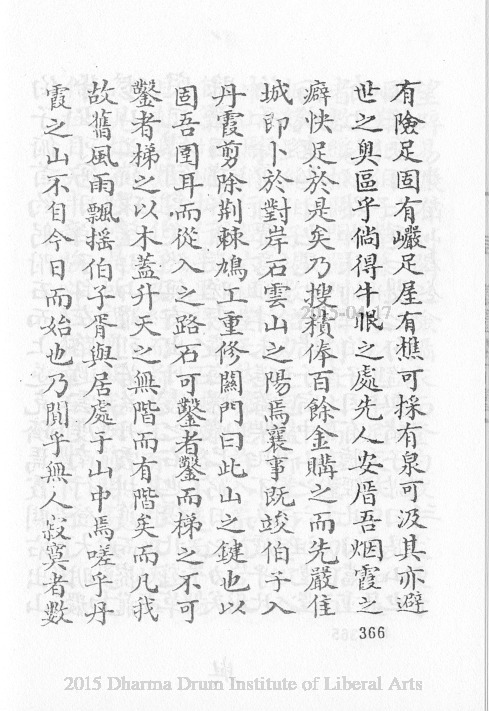 有險足固有巗足屋有樵可採有泉可汲其亦避
世之奥區乎倘得牛眠之處先人安厝吾烟霞之
癖快足於是矣乃搜積俸百餘金購之而先嚴隹
城即卜於對岸石雲山之陽焉襄事既竣伯子入
丹霞剪除荆棘鳩工重修關門曰此山之鍵也以
固吾圉耳而從入之路石可鑿者鑿而梯之不可
鑿者梯之以木蓋升天之無階而有階矣而凡我
故舊風雨飄摇伯子胥與居處于山中焉嗟乎丹
霞之山不自今日而始也乃閴乎無人寂寞者數
366
2015 Dharma Drum Institute of Liberal Arts